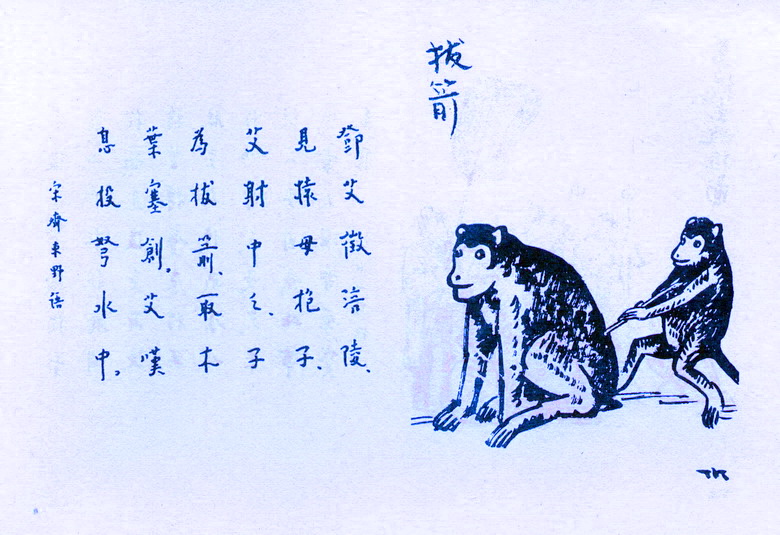 拔箭
鄧艾徵涪陵、
見猿母抱子、
艾射中之、子
為拔箭、取木
葉塞創。艾嘆
息投弩水中。
宋齊東野語
TK